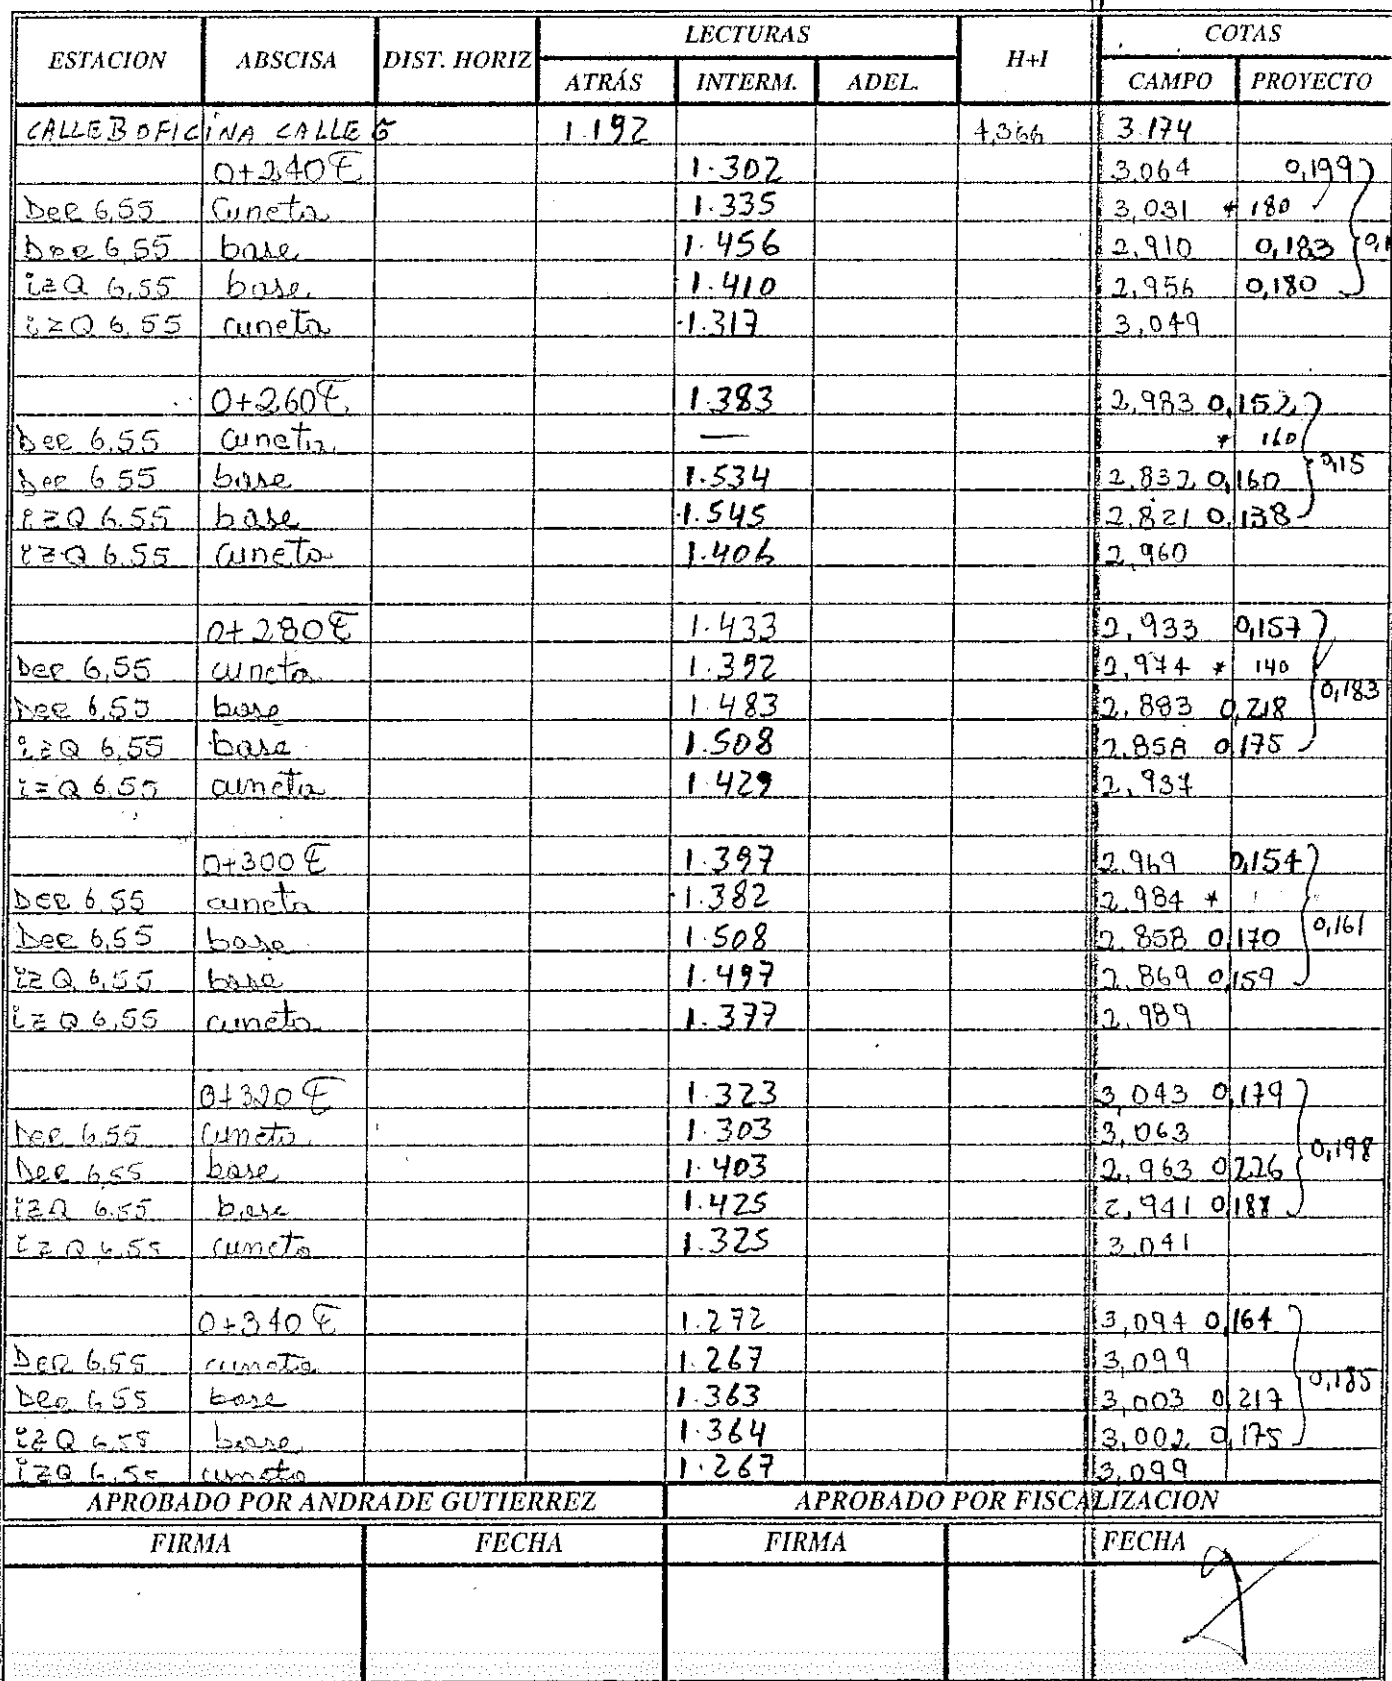 LECTURAS COTAS
ESTACION ABSCISA DIST. HORIZ H+I
ATRÁS INTERM. ADEL. CAMPO PROYECTO
CALLE B OFICINA CALLE G 1.192 4,366 3.174
0+240 ℄ 1.302 3,064 0,199
Der 6,55 Cuneta 1.335 3,031 * 180
Der 6,55 base 1.456 2,910 0,183
izQ 6,55 base 1.410 2,956 0,180
izQ 6,55 cuneta 1.317 3,049
0+260 ℄ 1.383 2,983 0,152
Der 6,55 cuneta — * 160
Der 6,55 base 1.534 2,832 0,160 0,15
izQ 6.55 base 1.545 2,821 0,138
izQ 6.55 cuneta 1.406 2,960
0+280 ℄ 1.433 2,933 0,157
Der 6,55 cuneta 1.392 2,974 * 140
Der 6,55 base 1.483 2,883 0,218 0,183
izQ 6,55 base 1.508 2,858 0,175
izQ 6,55 cuneta 1.429 2,937
0+300 ℄ 1.397 2,969 0,154
Der 6,55 cuneta 1.382 2,984 *
Der 6,55 base 1.508 2,858 0,170 0,161
izQ 6,55 base 1.497 2,869 0,159
izQ 6,55 cuneta 1.377 2,989
0+320 ℄ 1.323 3,043 0,179
Der 6,55 cuneta 1.303 3,063
Der 6,55 base 1.403 2,963 0,226 0,198
izQ 6.55 base 1.425 2,941 0,188
izQ 6,55 cuneta 1.325 3,041
0+340 ℄ 1.272 3,094 0,164
Der 6,55 cuneta 1.267 3,099
Der 6,55 base 1.363 3,003 0,217 0,185
izQ 6,55 base 1.364 3,002 0,175
izQ 6,55 cuneta 1.267 3,099
APROBADO POR ANDRADE GUTIERREZ APROBADO POR FISCALIZACION
FIRMA FECHA FIRMA FECHA